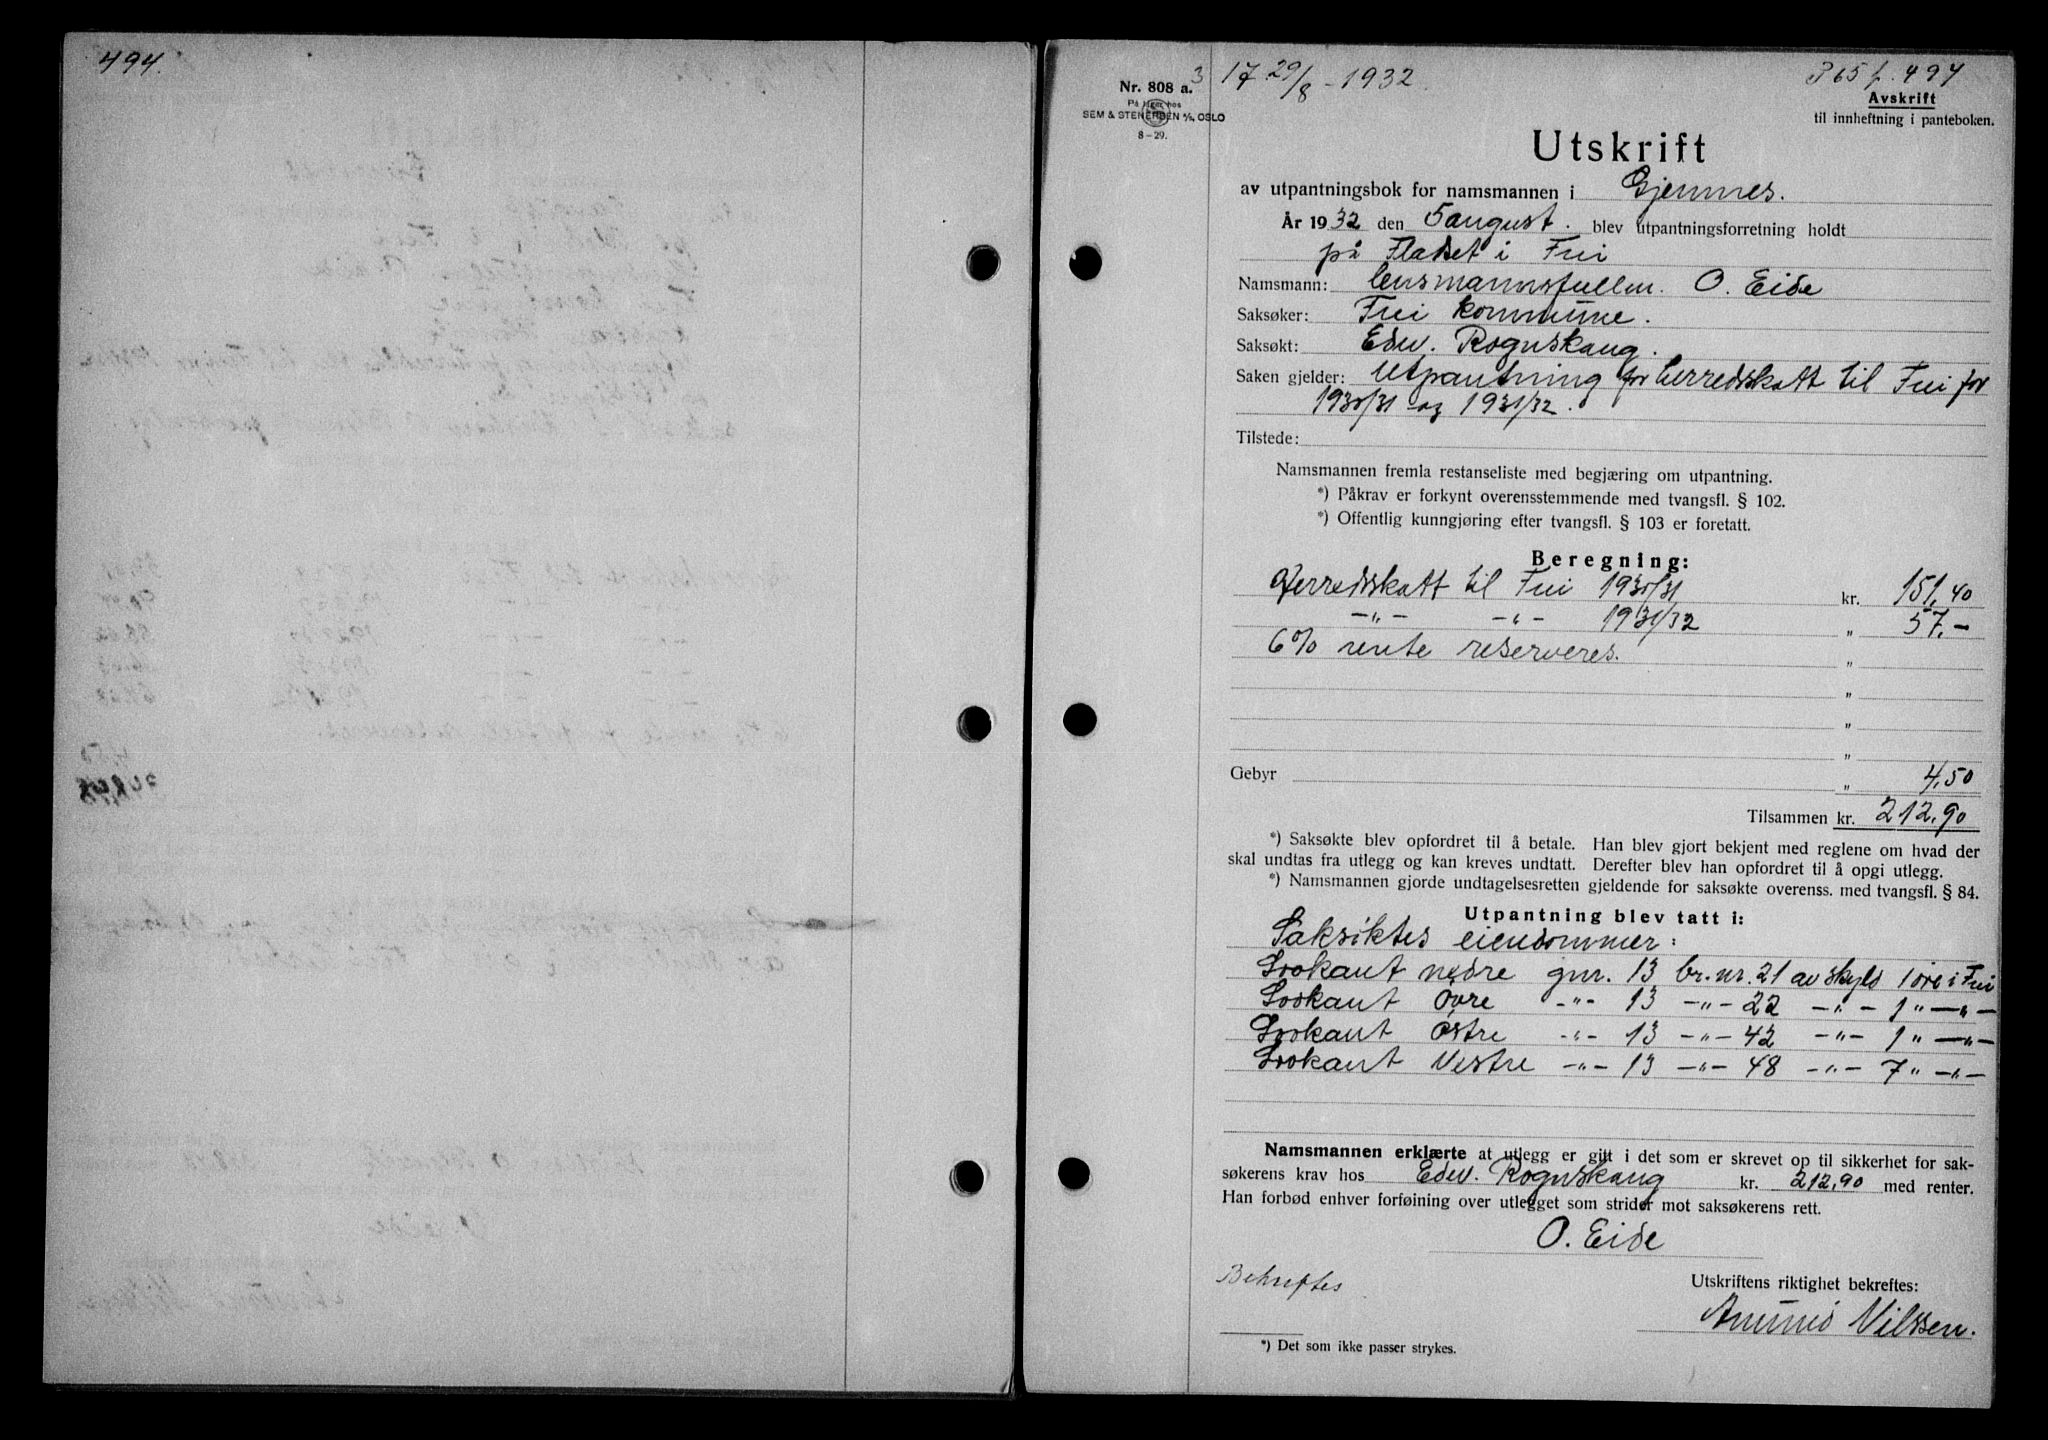 494.
Nr. 808 a.
På lager hos
SEM & STENERSEN A/S, OSLO
8-29.
3
17 29/8-1932
P65 f. 494
Avskrift
til innheftning i panteboken.
Utskrift
av utpantningsbok for namsmannen i Gjemnes.
År 1932 den 5 august. blev utpantningsforretning holdt
på Fladset i Frei
Namsmann: lensmannsfullm. O. Eide
Saksøker: Frei kommune.
Saksøkt: Edw. Rognskaug.
Saken gjelder: Utpantning for herredskatt til Frei for
1930/31 og 1931/32.
Tilstede:
Namsmannen fremla restanseliste med begjæring om utpantning.
*) Påkrav er forkynt overensstemmende med tvangsfl. § 102.
*) Offentlig kunngjøring efter tvangsfl. § 103 er foretatt.
Beregning:
Herredsskatt til Frei 1930/31 kr. 151,40
-„- -„- 1931/32 „ 57.-
6% rente reserveres. „
„
„
„
Gebyr „ 4,50
Tilsammen kr. 212,90
*) Saksøkte blev opfordret til å betale. Han blev gjort bekjent med reglene om hvad der
skal undtas fra utlegg og kan kreves undtatt. Derefter blev han opfordret til å opgi utlegg.
*) Namsmannen gjorde undtagelsesretten gjeldende for saksøkte overenss. med tvangsfl. § 84.
Utpantning blev tatt i:
Saksøktes eiendommer:
nedre gnr. 13 br.nr. 21 av skyld 1 øre i Frei
Øvre -„- 13 -„- 22 -„- 1 „ -„-
Østre -„- 13 -„- 42 -„- 1 „ -„-
Vestre -„- 13 -„- 48 -„- 7 „ -„-
Namsmannen erklærte at utlegg er gitt i det som er skrevet op til sikkerhet for sak-
søkerens krav hos Edw. Rognskaug kr. 212,90 med renter.
Han forbød enhver forføining over utlegget som strider mot saksøkerens rett.
O. Eide
Bekreftes
Utskriftens riktighet bekreftes:
Nilssen.
*) Det som ikke passer strykes.